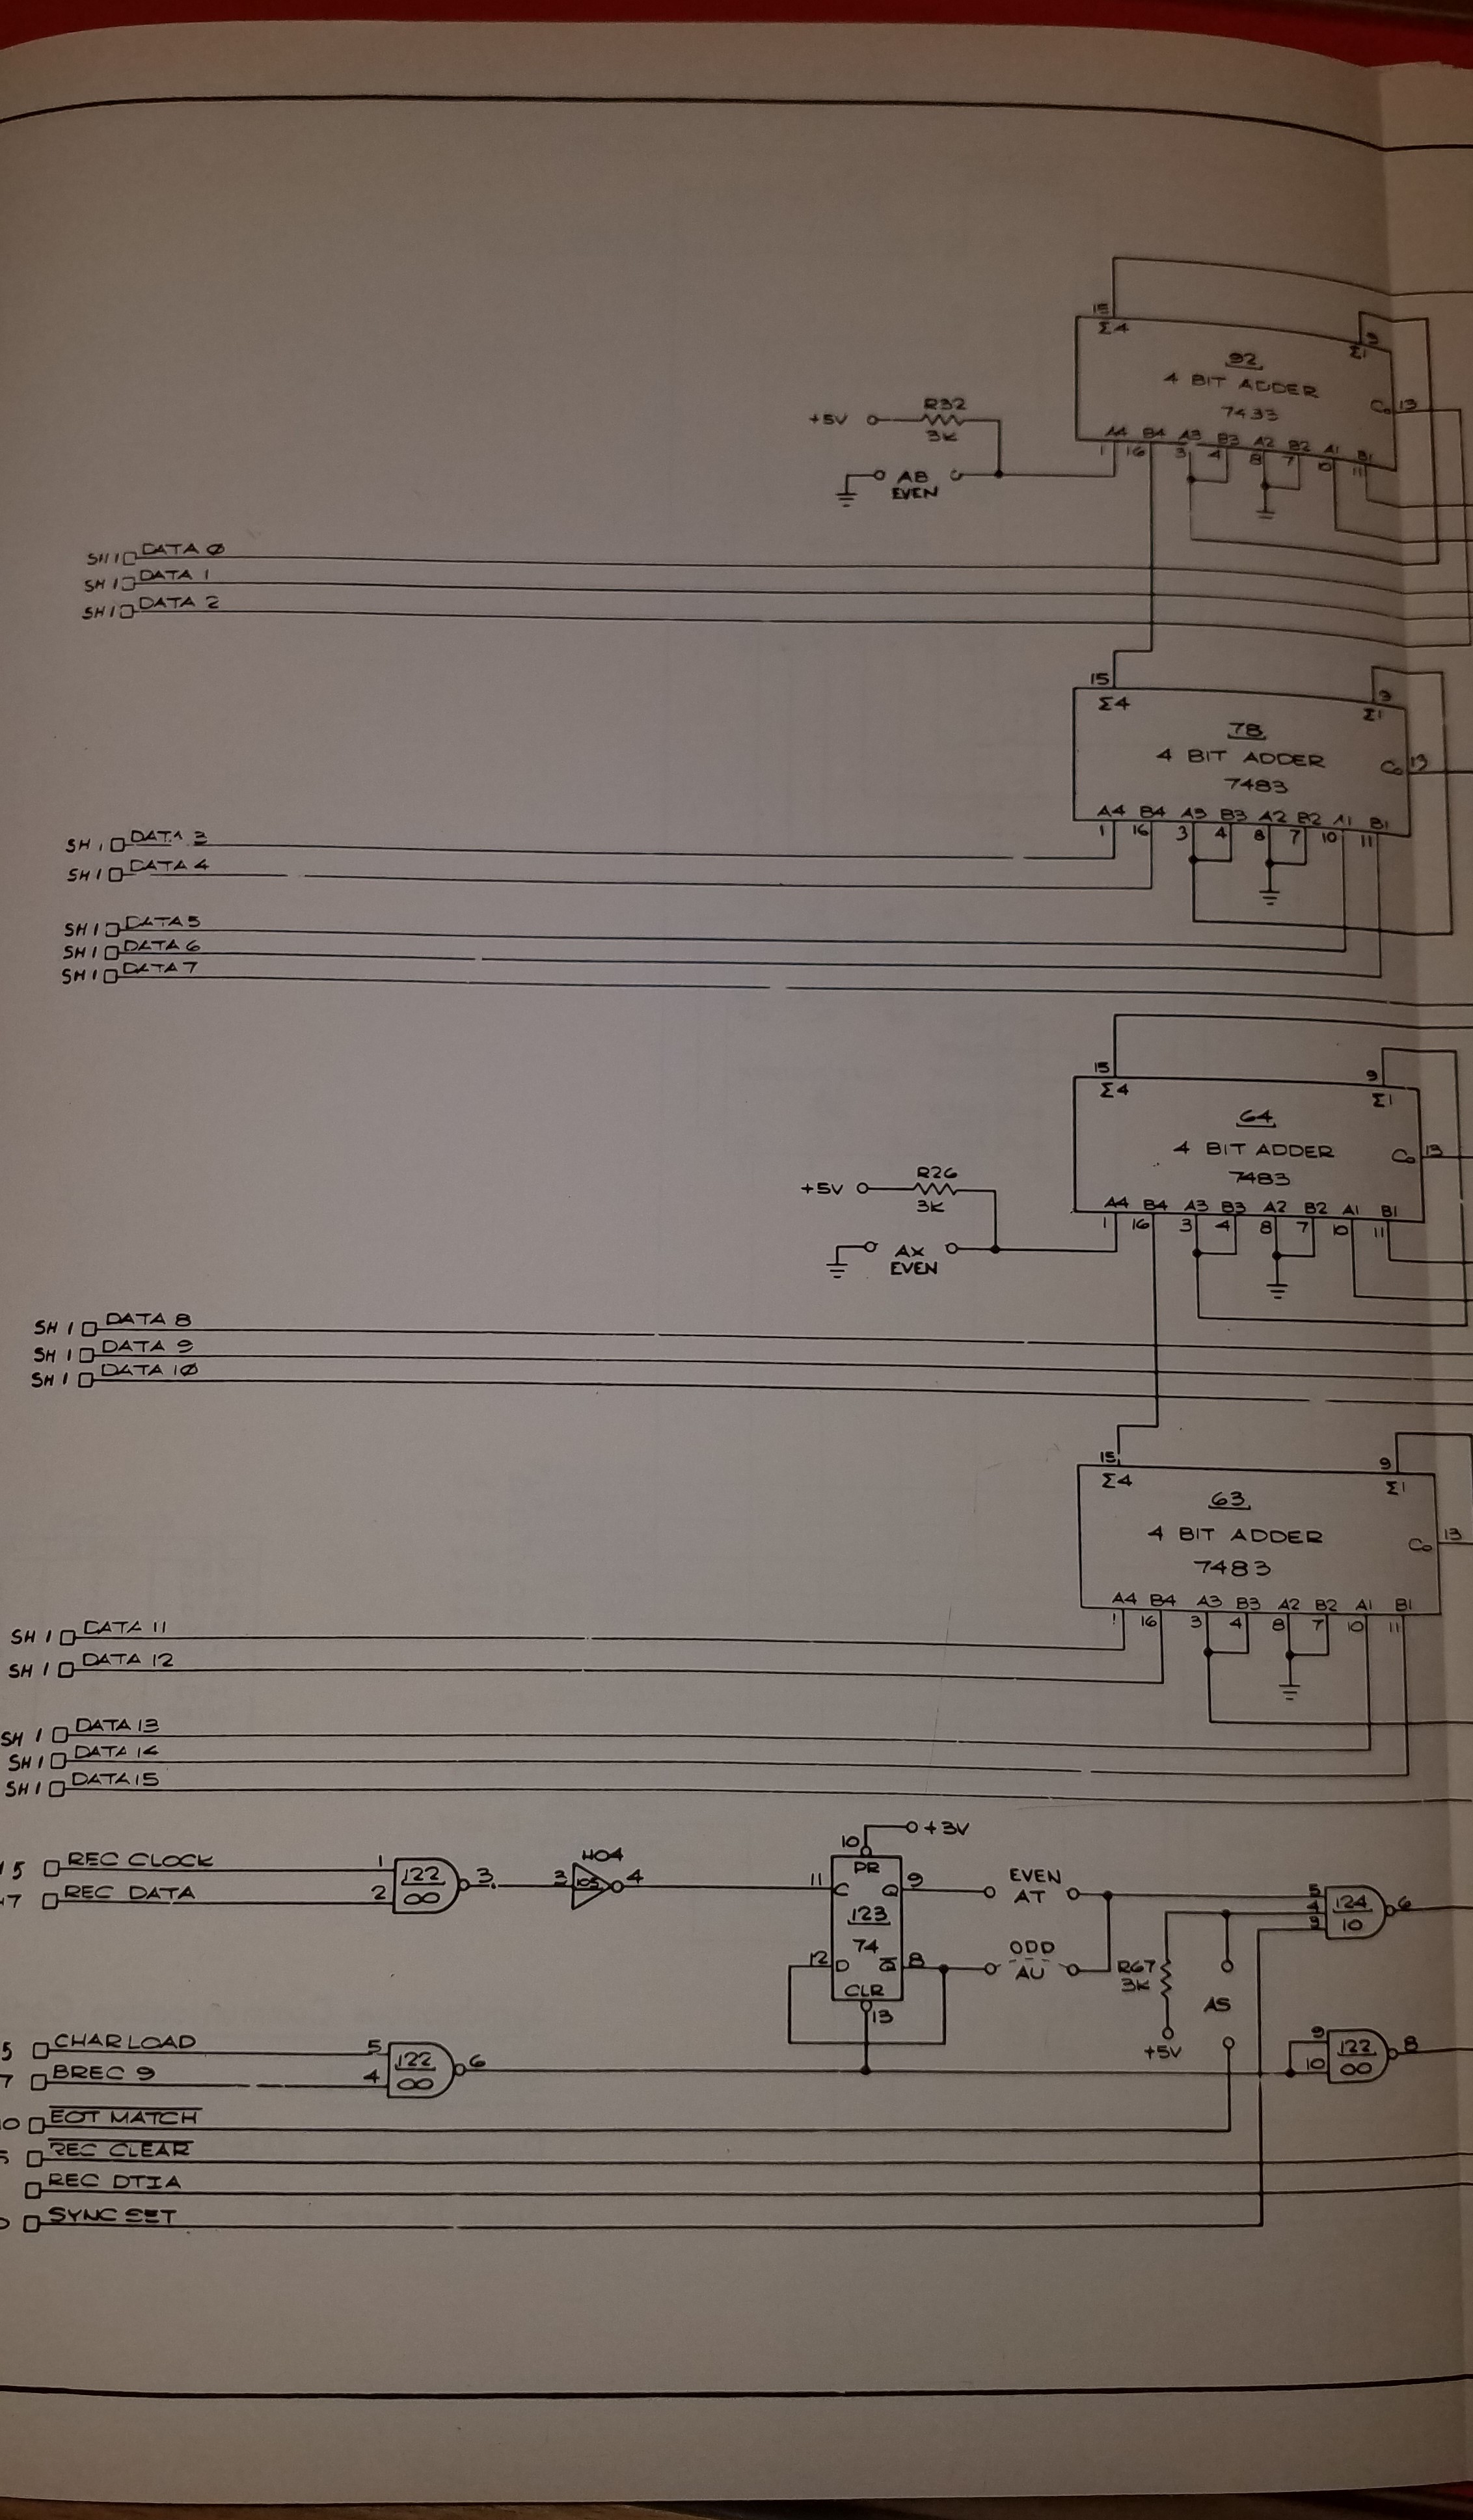 15 Σ4 9 Σ1
92
4 BIT ADDER
7433
C₀ 13
A4 B4 A3 B3 A2 B2 A1 B1
1 16 3 4 8 7 10 11
+5V R32
3K
AB
EVEN
SH 1 DATA Ø
SH 1 DATA 1
SH 1 DATA 2
15 Σ4 9 Σ1
78
4 BIT ADDER
7483
C₀ 13
A4 B4 A3 B3 A2 B2 A1 B1
1 16 3 4 8 7 10 11
SH 1 DATA 3
SH 1 DATA 4
SH 1 DATA 5
SH 1 DATA 6
SH 1 DATA 7
15 Σ4 9 Σ1
64
4 BIT ADDER
7483
C₀ 13
A4 B4 A3 B3 A2 B2 A1 B1
1 16 3 4 8 7 10 11
+5V R26
3K
AX
EVEN
SH 1 DATA 8
SH 1 DATA 9
SH 1 DATA 1Ø
15 Σ4 9 Σ1
63
4 BIT ADDER
7483
C₀ 13
A4 B4 A3 B3 A2 B2 A1 B1
1 16 3 4 8 7 10 11
SH 1 DATA 11
SH 1 DATA 12
SH 1 DATA 13
SH 1 DATA 14
SH 1 DATA 15
5 REC CLOCK
7 REC DATA
1 2 122 00 3
HO4
3 105 4
10 +3V
PR
11 C Q 9
123
74
12 D Q̅ 8
CLR
13
EVEN
AT
ODD
AU
R67
3K
+5V
AS
5 4 3 124 10 6
5 CHAR LOAD
7 BREC 9
5 4 122 00 6
9 10 122 00 8
0 EOT MATCH
5 REC CLEAR
REC DTIA
SYNC SET